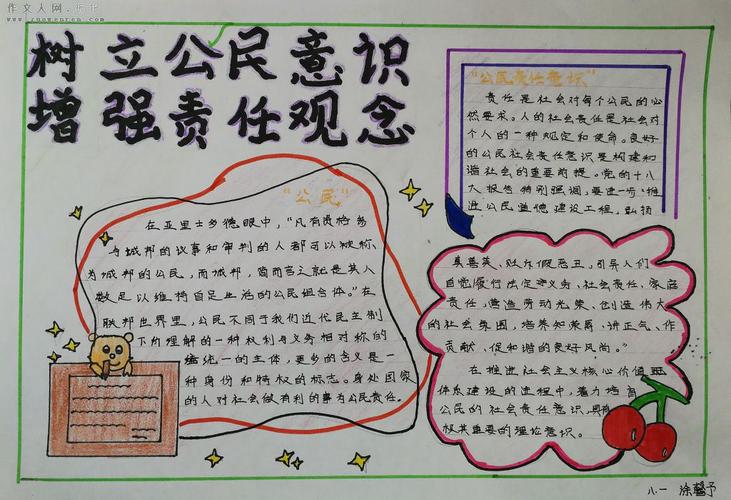 作文人网
www.zuowenren.com
树立公民意识
增强责任观念
“公民”
在亚里士多德眼中，“凡有资格参
与城邦的议事和审判的人都可以被称
为城邦的公民，而城邦，简而言之就是其人
数足以维持自足生活的公民组合体。”在
联邦世界里，公民不同于我们近代民主制
下所理解的一种权利与义务相对称的
统一的主体，更多的含义是一
种身份和特权的标志。身处国家
的人对社会做有利的事为公民责任。
“公民责任意识”
责任是社会对每个公民的必
然要求。人的社会责任是社会对
个人的一种规定和使命。良好
的公民社会责任意识是构建和
谐社会的重要前提。党的十八
大报告特别强调，要进一步推
进公民道德建设工程，弘扬
真善美、贬斥假恶丑。引导人们
自觉履行法定义务、社会责任、家庭
责任，营造劳动光荣、创造伟大
的社会氛围，培养知荣辱、讲正气、作
贡献、促和谐的良好风尚。”
在推进社会主义核心价值
体系建设的进程中，着力培育
公民的社会责任意识，具有
极其重要的理论意识。
八.一 涂馨予